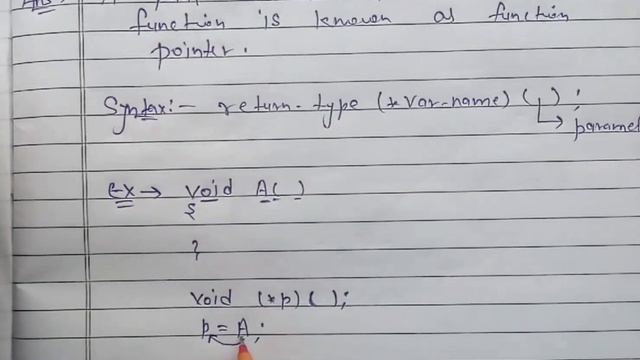 Ans:
function is known as function
pointer.
Syntax:- return-type (*var-name) ( , ) ;
Ex → void A( )
{
}
void (*p) ( );
p = A ;